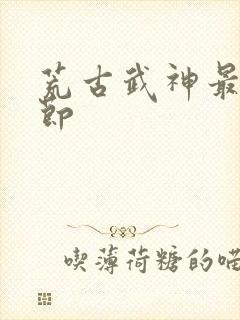 荒古武神最
节
喫薄荷糖的喵